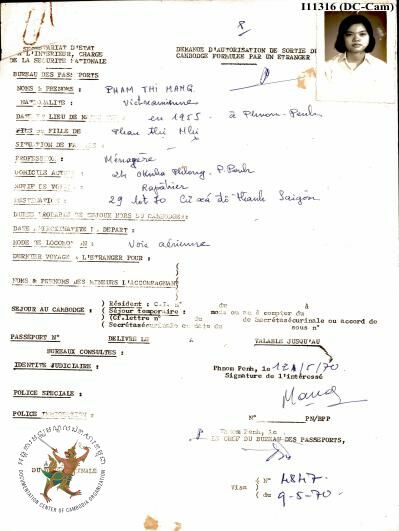 I11316 (DC-Cam)
SECRETARIAT D'ETAT
A L'INTERIEUR, CHARGE
DE LA SECURITE NATIONALE
BUREAU DES PASSPORTS
DEMANDE D'AUTORISATION DE SORTIE DU
CAMBODGE FORMULEE PAR UN ETRANGER
NOMS & PRENOMS : PHAM THI MANG
NATIONALITE : Vietnamienne
DATE & LIEU DE en 1955 à Phnom-Penh
FILLE DE Phan thi
SITUATION DE
PROFESSION : Ménagère
DOMICILE 24 Oknha P.Penh
MOTIF DE Rapatrier
DESTINATION : 29 lot 70 Cư xá đô thành Saigon
DUREE PROBABLE DE SEJOUR HORS DU CAMBODGE :
DATE APPROXIMATIVE DE DEPART :
MODE DE LOCOMOTION : Voie aérienne
DERNIER VOYAGE A L'ETRANGER POUR :
NOMS & PRENOMS DES MINEURS L'ACCOMPAGNANT
SEJOUR AU CAMBODGE : ) Résident : C.I. n° du à
) Séjour temporaire : mois ou an à compter du
) (Cf.lettre n° du de Secrétasécurinale ou accord de
Secrétasécurinale en date du sous n°
PASSEPORT N° DELIVRE LE A VALABLE JUSQU'AU
BUREAUX CONSULTES :
IDENTITE JUDICIAIRE :
Phnom Penh, le 12/5/70
Signature de l'intéressé
Mang
POLICE SPECIALE :
N° PN/BPP
POLICE
Phnom Penh, le
LE CHEF DU BUREAU DES PASSEPORTS,
Visa ( N° 4847
( du 9-5-70
DOCUMENTATION CENTER OF CAMBODIA ORGANIZATION